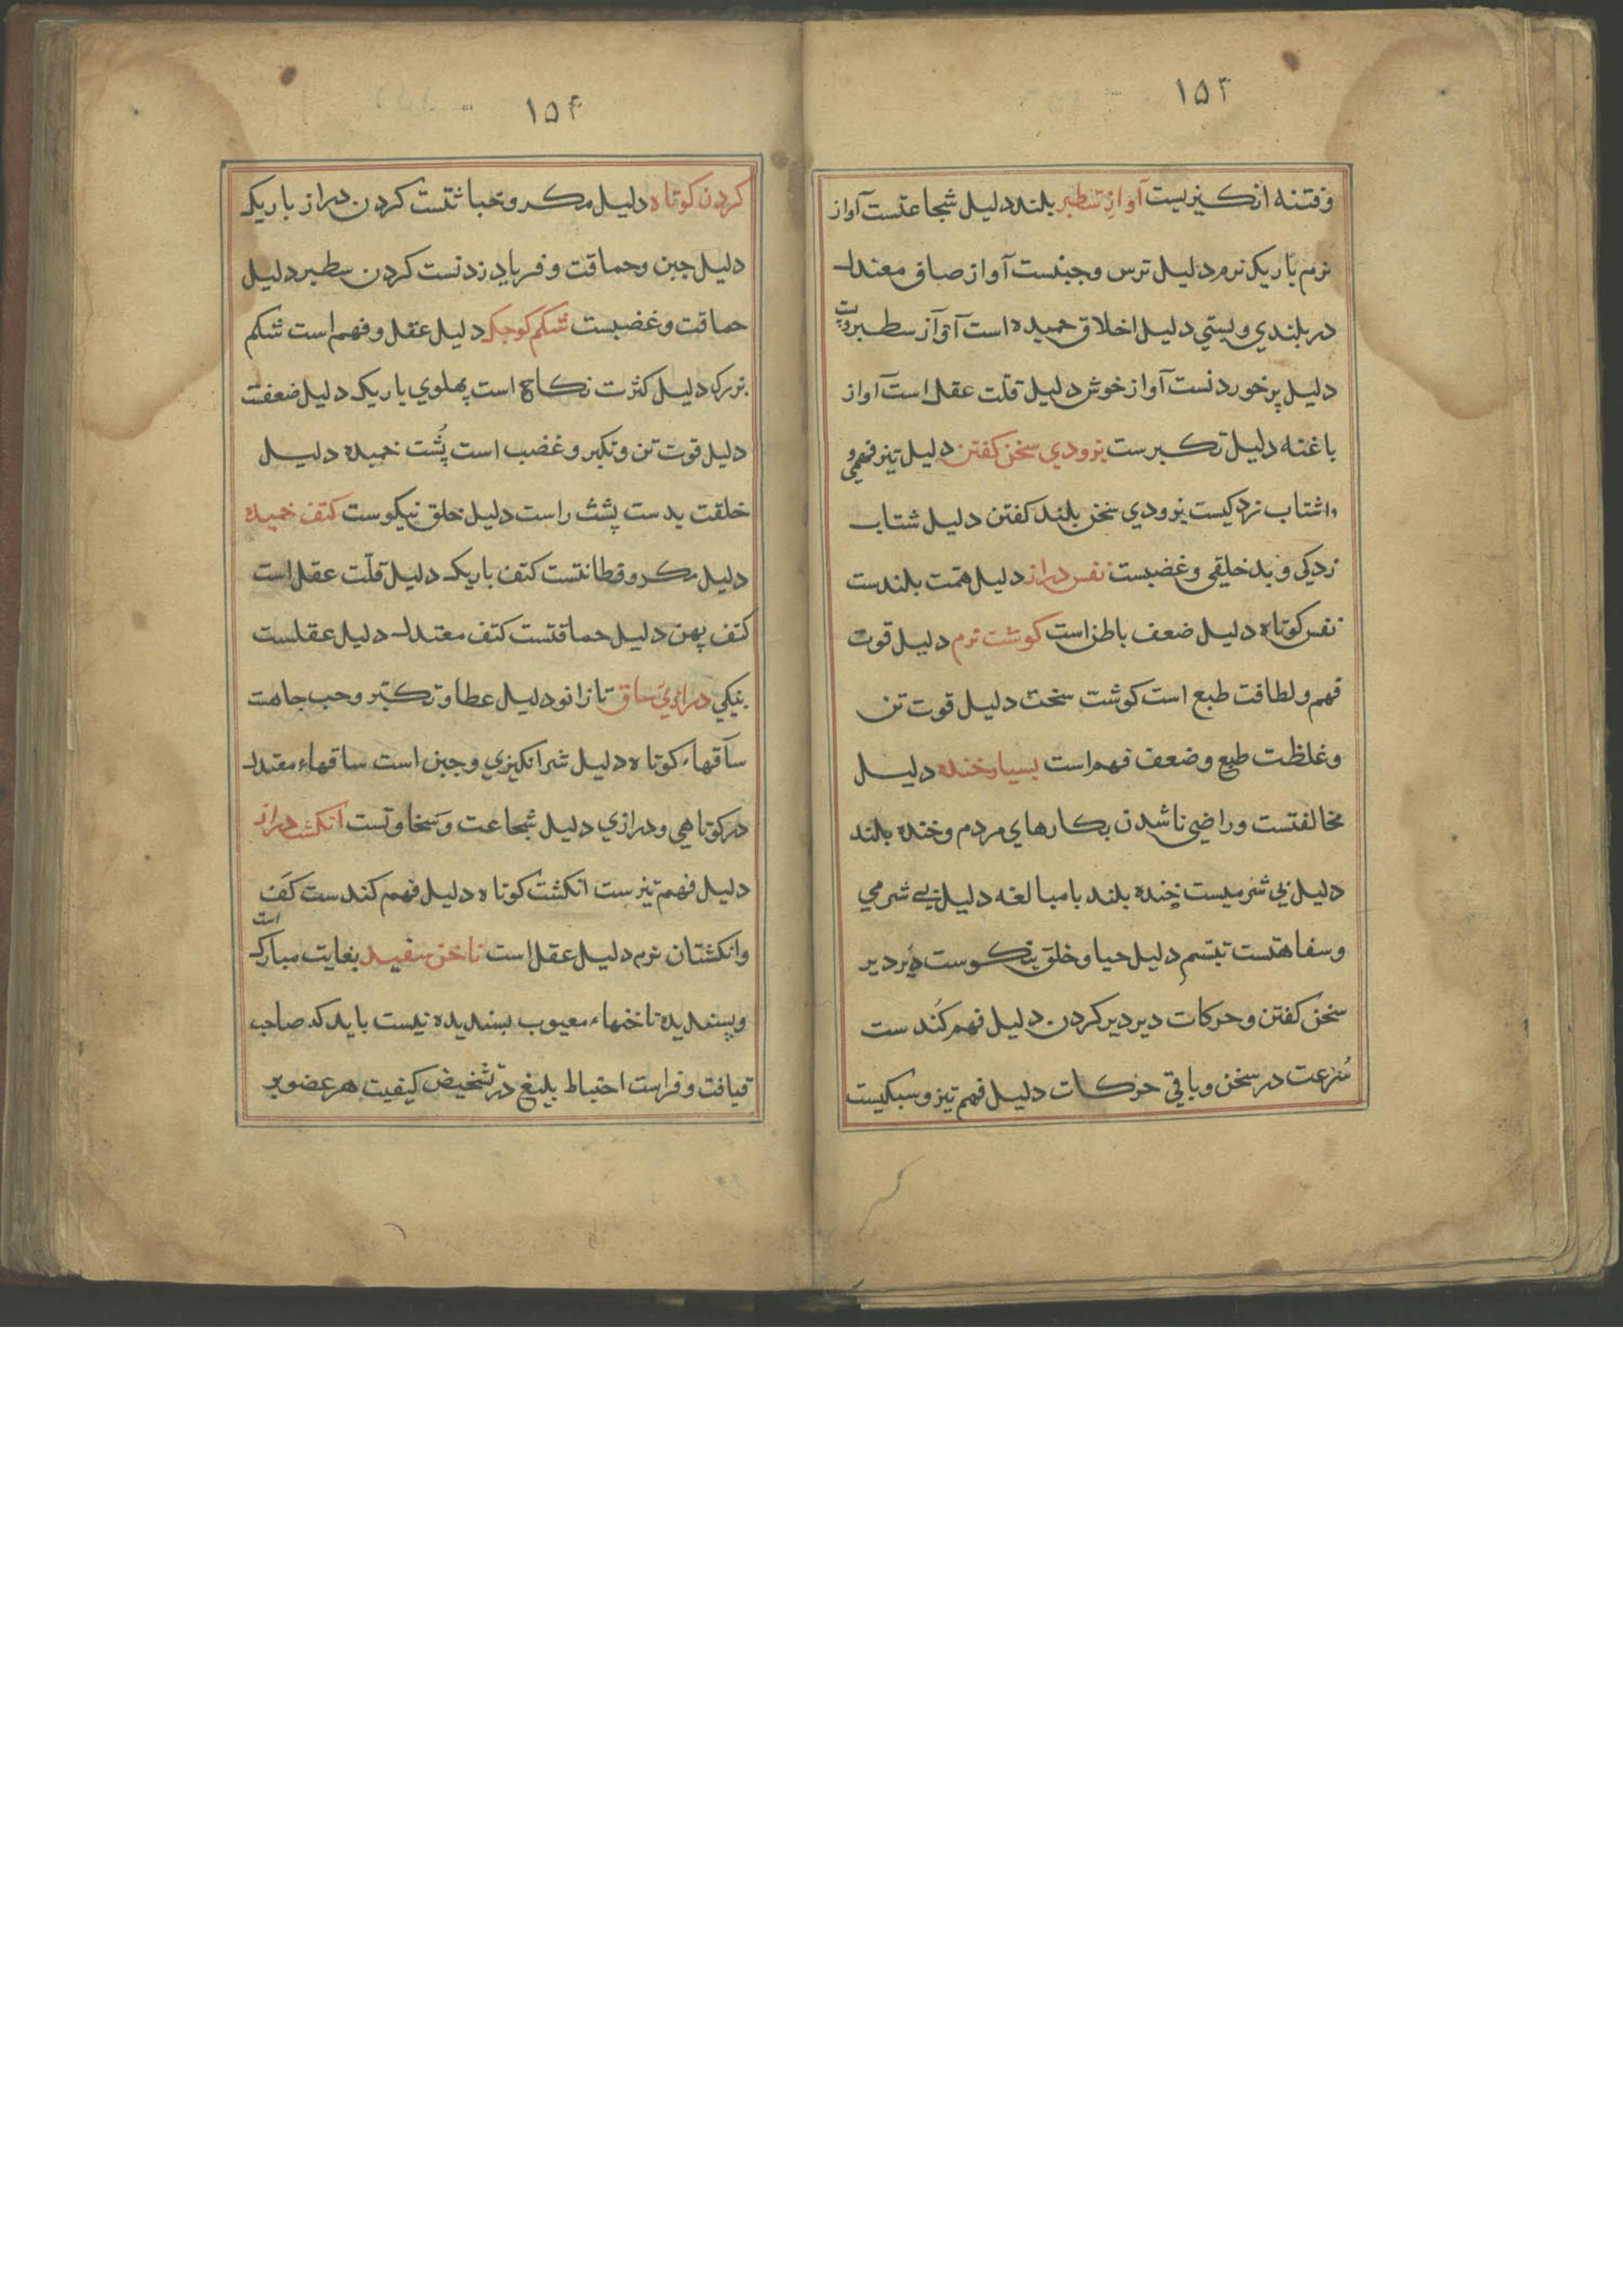 ۱۵۳
وفتنه انکیزیست آواز سطبر بلند دلیل شجاعتست آواز
نرم باریک نرم دلیل ترس وجبنست آواز صافی معتدل
در بلندی وپستی دلیل اخلاق حمیده است آواز سطبر وپست
دلیل پرخوردنست آواز خوش دلیل قلت عقل است آواز
باغنه دلیل تکبرست بزودی سخن کفتن دلیل تیزفهمی و
اشتاب زدکیست بزودی سخن بلند کفتن دلیل شتاب
زدکی و بدخلیقی وغضبست نفس دراز دلیل همت بلندست
نفس کوتاه دلیل ضعف باطن است کوشت نرم دلیل قوت
فهم ولطافت طبع است کوشت سخت دلیل قوت تن
وغلظت طبع وضعف فهم است بسیار خنده دلیل
مخالفتست وراضی ناشدن بکارهای مردم وخنده بلند
دلیل بی شرمیست خنده بلند بامبالغه دلیل بی شرمی
وسفاهتست تبسم دلیل حیا وخلق نیکوست دیر دیر
سخن کفتن وحرکات دیر دیر کردن دلیل فهم کُندست
سُرعت در سخن وباقی حرکات دلیل فهم تیز وسبکیست
۱۵۴
کردن کوتاه دلیل مکر وخباثتست کردن دراز باریک
دلیل جبن وحماقت وفریاد زدنست کردن سطبر دلیل
حماقت وغضبست شکم کوچک دلیل عقل وفهم است شکم
بزرک دلیل کثرت نکاح است پهلوی باریک دلیل ضعفست
دلیل قوت تن وتکبر وغضب است پُشت خمیده دلیل
خلقت بدست پشت راست دلیل خلق نیکوست کتف خمیده
دلیل مکر وفطانتست کتف باریک دلیل قلّت عقل است
کتف پهن دلیل حماقتست کتف معتدل دلیل عقلست
نیکی درازی ساق تا زانو دلیل عطا وتکبّر وحب جاهست
ساقهاء کوتاه دلیل شرانکیزی وجبن است ساقهاء معتدل
در کوتاهی ودرازی دلیل شجاعت وسخاوتست انکشت دراز
دلیل فهم تیزست انکشت کوتاه دلیل فهم کندست کف
وانکشتان نرم دلیل عقل است ناخن سفید بغایت مبارک است
وپسندیده ناخنهاء معیوب پسندیده نیست باید که صاحب
قیافت وفراست احتیاط بلیغ در تشخیص کیفیت هر عضو بر